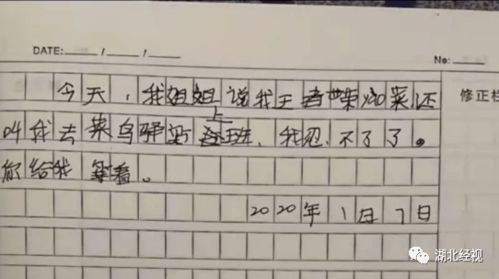 DATE: / /
No:
今天，我姐姐说我王者荣耀菜还
修正栏
叫我去菜鸟驿站上班，我忍不了了。
你给我等着。
2020年1月7日
湖北经视